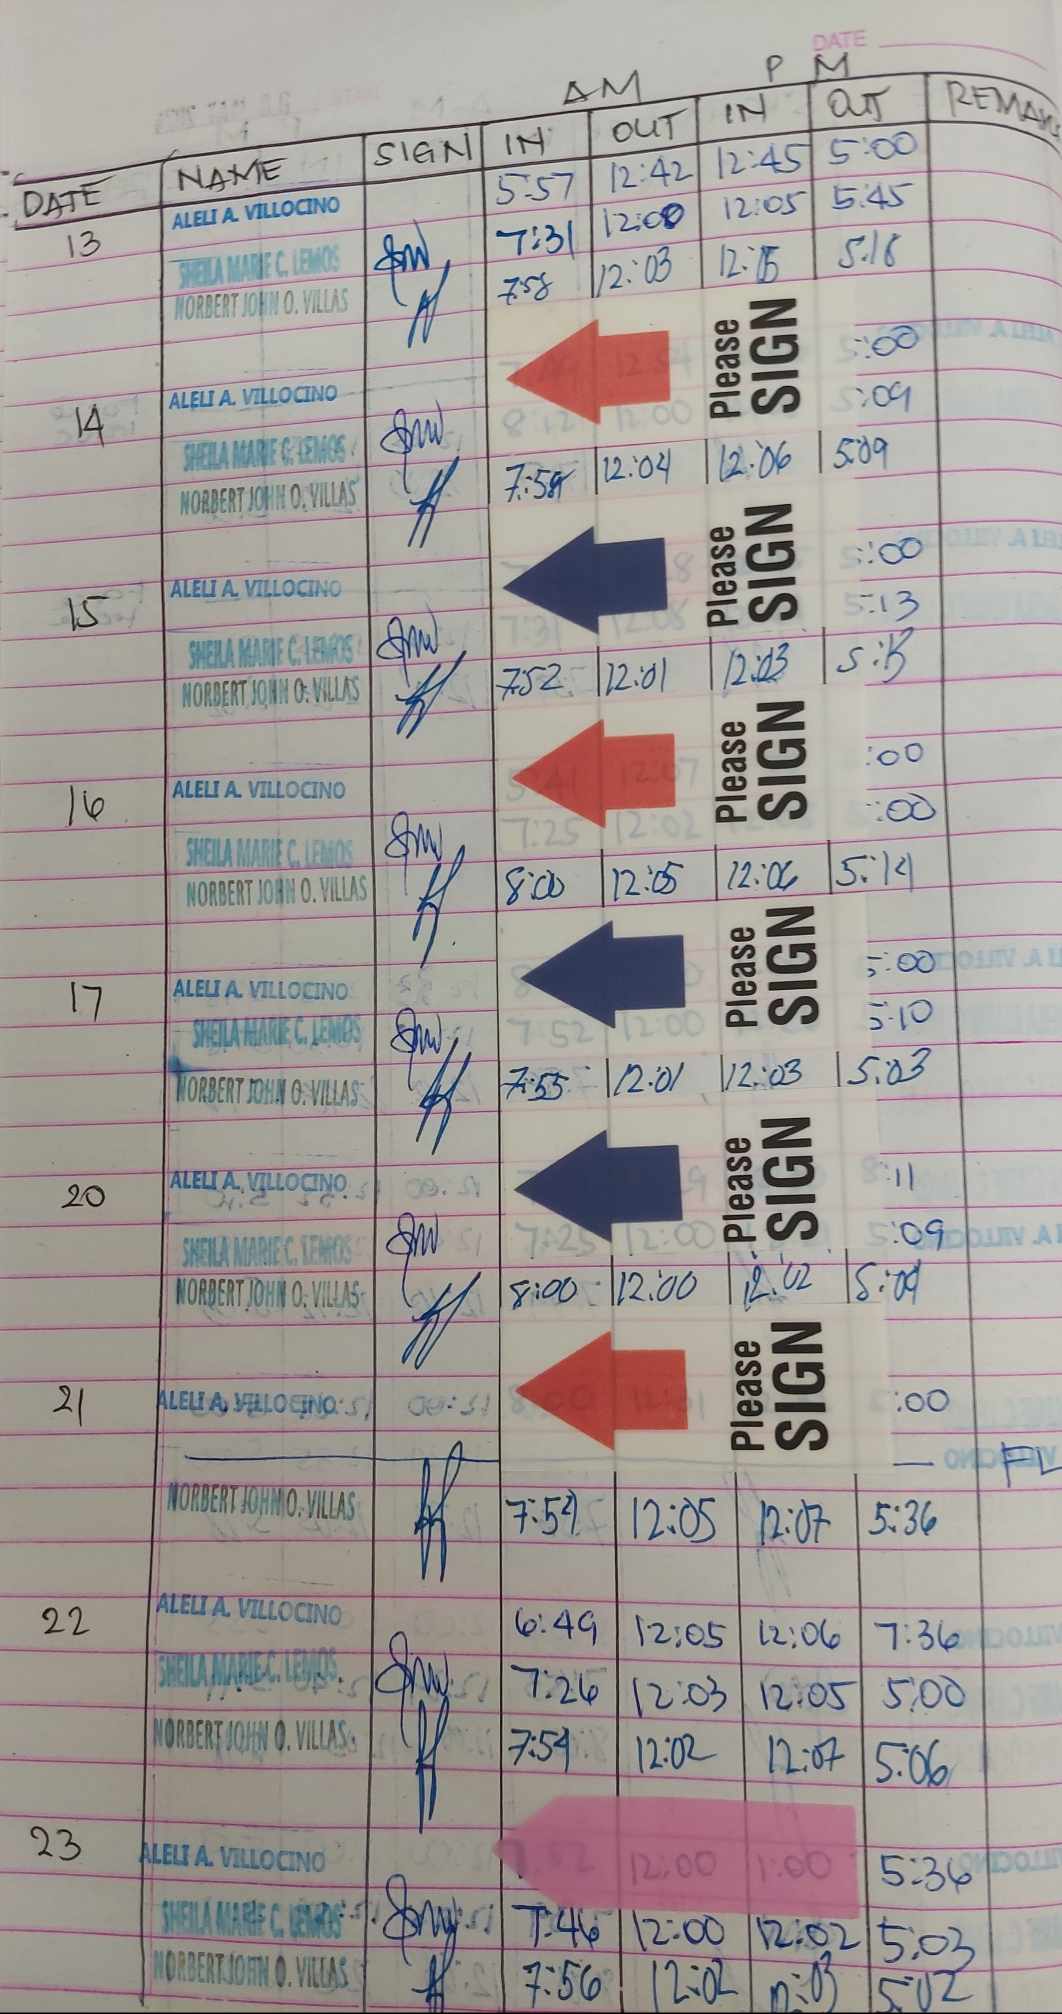 DATE
AM PM
DATE NAME SIGN IN OUT IN OUT REMAR
13 ALELI A. VILLOCINO 5:57 12:42 12:45 5:00
SHEILA MARIE C. LEMOS 7:31 12:00 12:05 5:45
NORBERT JOHN O. VILLAS 7:58 12:03 12:15 5:18
14 ALELI A. VILLOCINO Please SIGN 5:00
SHEILA MARIE C. LEMOS 8:12 12:00 5:09
NORBERT JOHN O. VILLAS 7:59 12:04 12:06 5:09
15 ALELI A. VILLOCINO Please SIGN :00
SHEILA MARIE C. LEMOS 7:31 12:08 5:13
NORBERT JOHN O. VILLAS 7:52 12:01 12:03 5:13
16 ALELI A. VILLOCINO 12:07 Please SIGN :00
SHEILA MARIE C. LEMOS 7:25 12:02 :00
NORBERT JOHN O. VILLAS 8:00 12:05 12:06 5:14
17 ALELI A. VILLOCINO Please SIGN 5:00
SHEILA MARIE C. LEMOS 7:52 12:00 5:10
NORBERT JOHN O. VILLAS 7:55 12:01 12:03 5:03
20 ALELI A. VILLOCINO Please SIGN 8:11
SHEILA MARIE C. LEMOS 7:25 12:00 5:09
NORBERT JOHN O. VILLAS 8:00 12:00 12:02 5:09
21 ALELI A. VILLOCINO Please SIGN :00
FL
NORBERT JOHN O. VILLAS 7:59 12:05 12:07 5:36
22 ALELI A. VILLOCINO 6:49 12:05 12:06 7:36
SHEILA MARIE C. LEMOS 7:26 12:03 12:05 5:00
NORBERT JOHN O. VILLAS 7:59 12:02 12:07 5:06
23 ALELI A. VILLOCINO 12:00 1:00 5:36
SHEILA MARIE C. LEMOS 7:46 12:00 12:02 5:03
NORBERT JOHN O. VILLAS 7:56 12:02 12:03 5:02